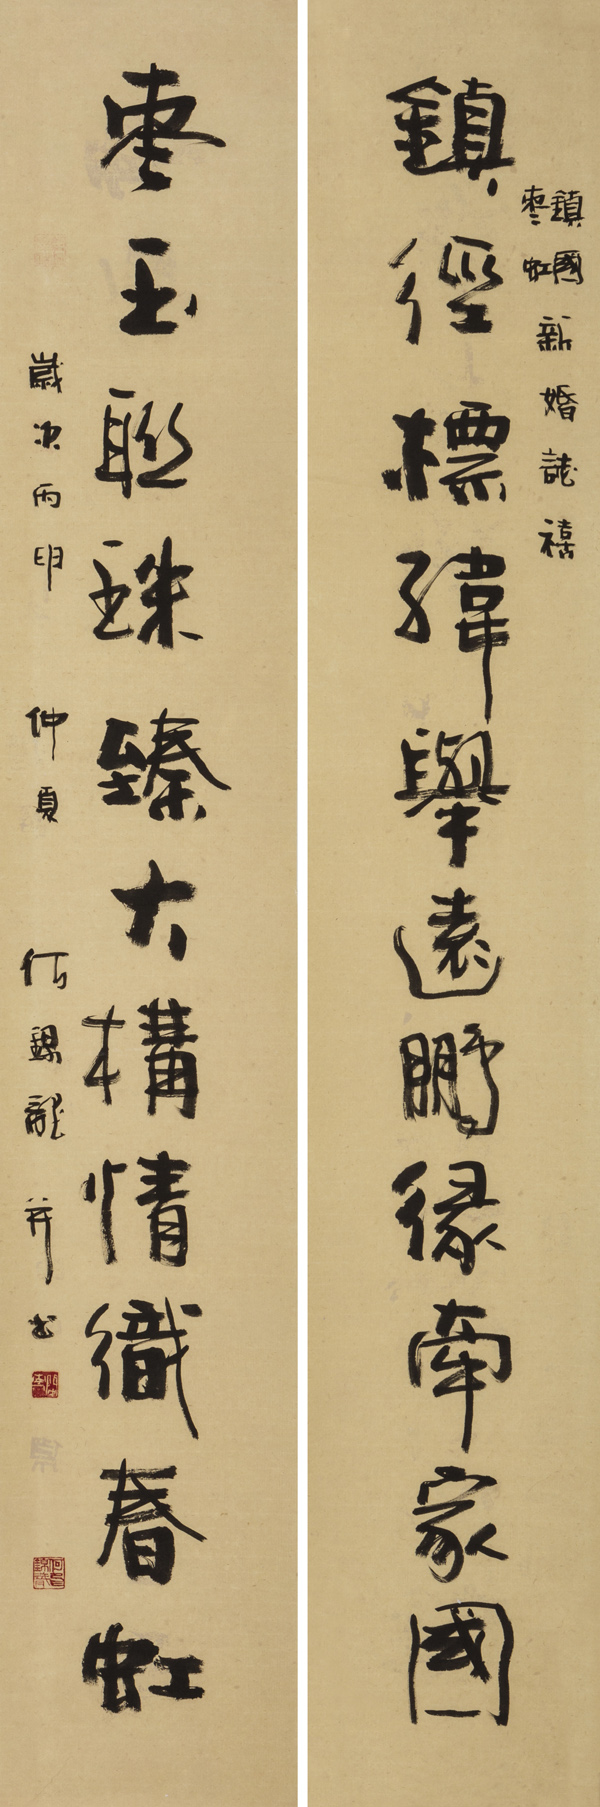 鎮國
枣虹
新婚誌禧
鎮經標緯舉遠鵬緣牽家國
枣玉聯珠臻大構情織春虹
歲次丙申 仲夏 何錦龍 并书